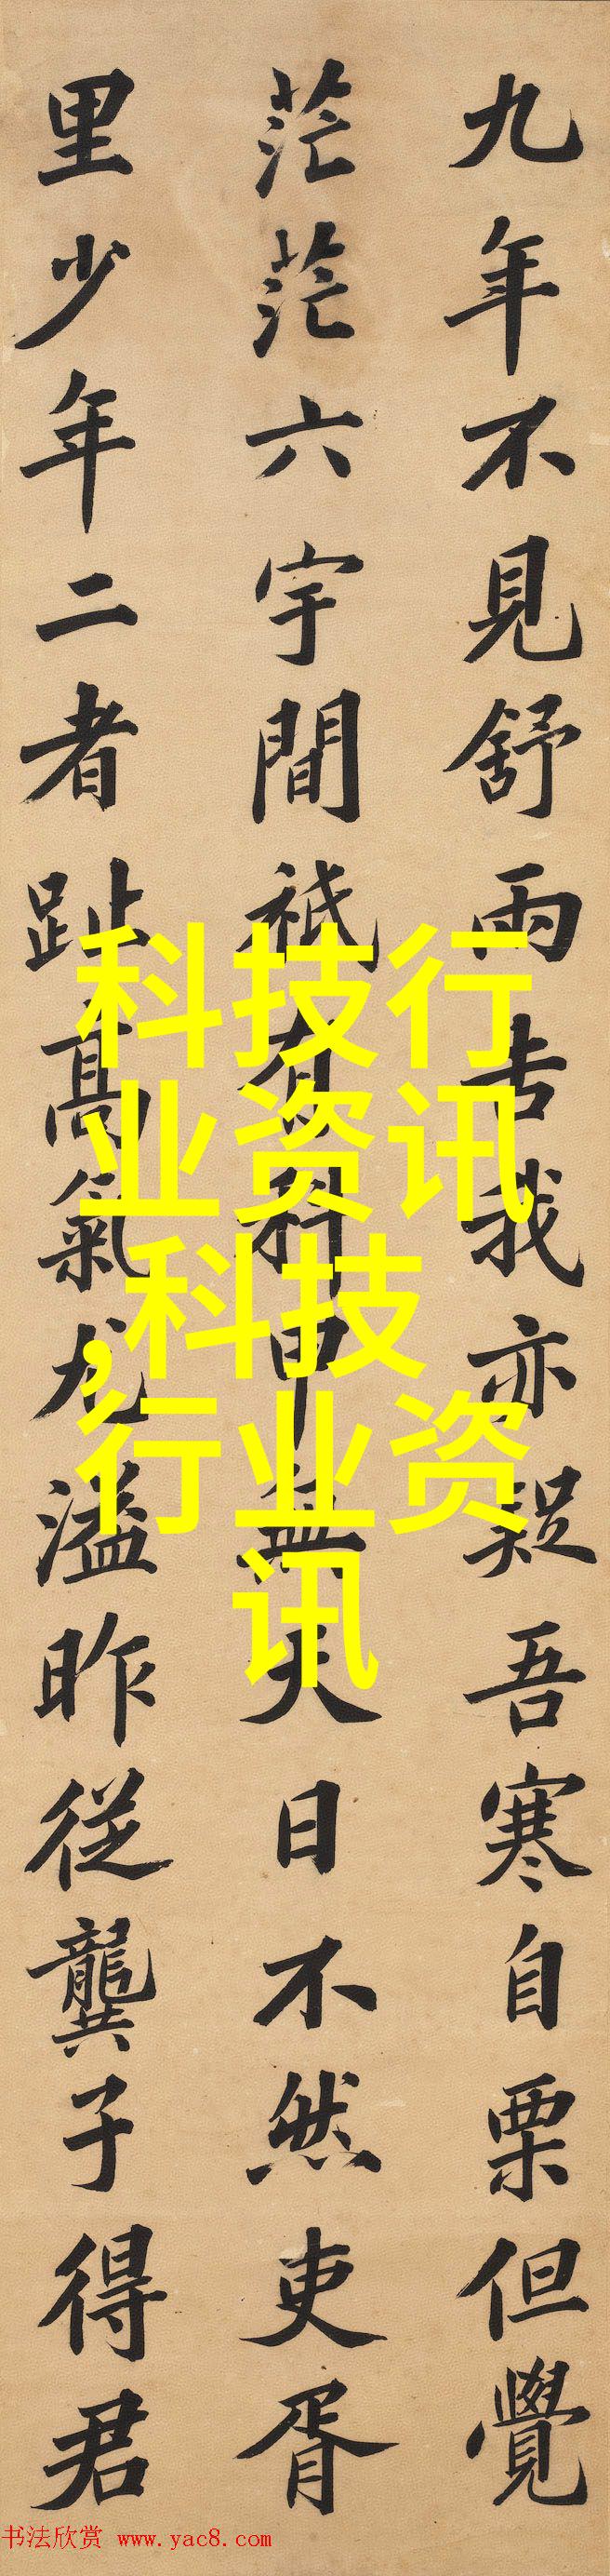 九年不見舒雨告我亦疑吾寒自栗但覺
茫茫六宇間祇有科甲無天日不然吏胥
里少年二者趾高氣尤溢昨従龔子得君
科技行
业资讯
,科技
行业资
讯
书法欣赏 www.yac8.com